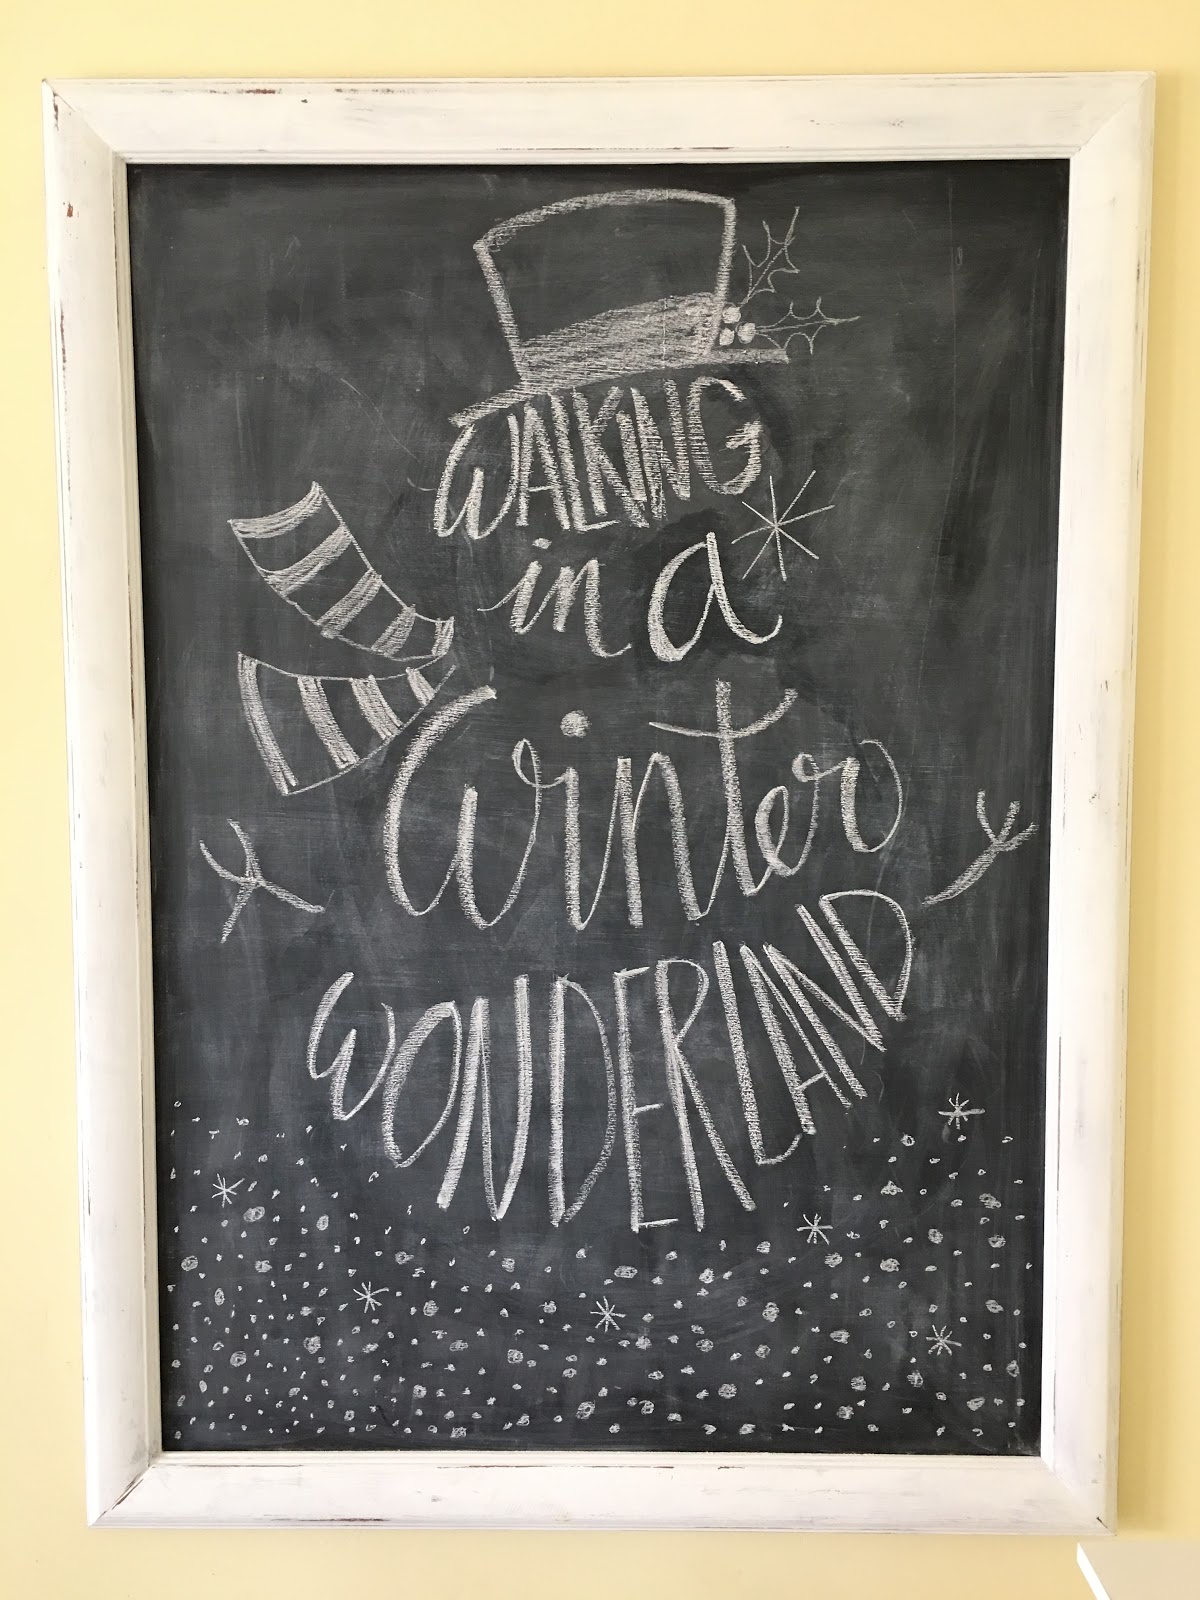 WALKiNG
in a
Winter
WONDERLAND